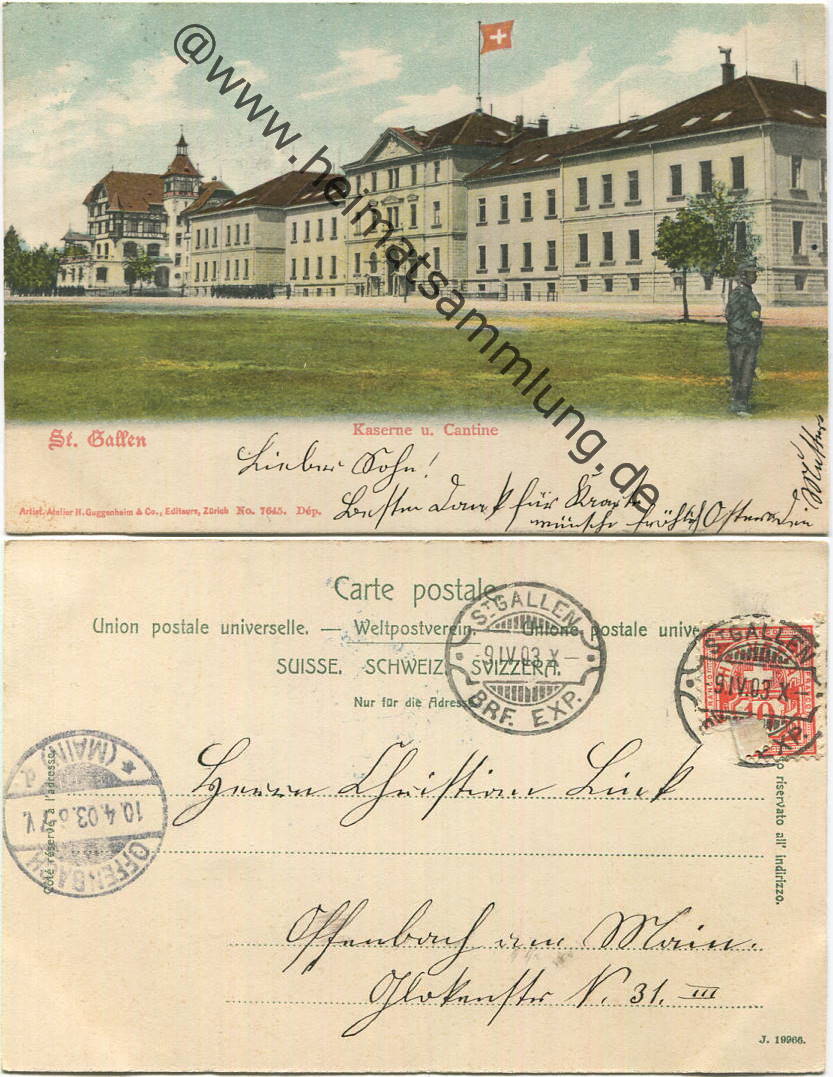 @www.heimatsammlung.de
St. Gallen
Kaserne u. Cantine
Lieber Sohn!
Besten Dank für Karte
wünsche fröhlich Ostern dein
Artist. Atelier H. Guggenheim & Co., Editeurs, Zürich No. 7645. Dép.
Carte postale
Union postale universelle. — Weltpostverein. — Unione postale unive
SUISSE. SCHWEIZ. SVIZZERA.
Nur für die Adresse
ST. GALLEN
-9.IV.03.X-
BRF. EXP.
ST. GALLEN
9.IV.03.X-
10
(MAIN)
10.4.03.
OFFENBACH
Côté réservé à l'adresse.
riservato all' indirizzo.
Herrn Christian Link
Offenbach am Main.
N. 31. III
J. 19966.